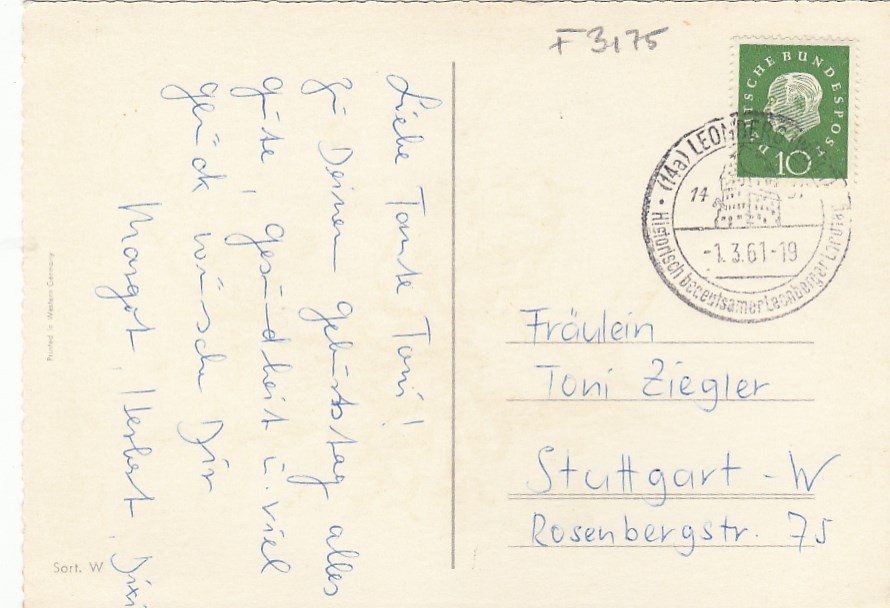 F 3175
DEUTSCHE BUNDESPOST
10
(14a) LEONBERG
14
-1.3.61-19
Historisch bedeutsamer Leonberger Landtag
Liebe Tante Toni!
Zu Deinem Geburtstag alles
gute, Gesundheit u. viel
Glück wünschen Dir
Margot, Herbert, Dixi
Fräulein
Toni Ziegler
Stuttgart - W
Rosenbergstr. 75
Printed in Western Germany
Sort. W